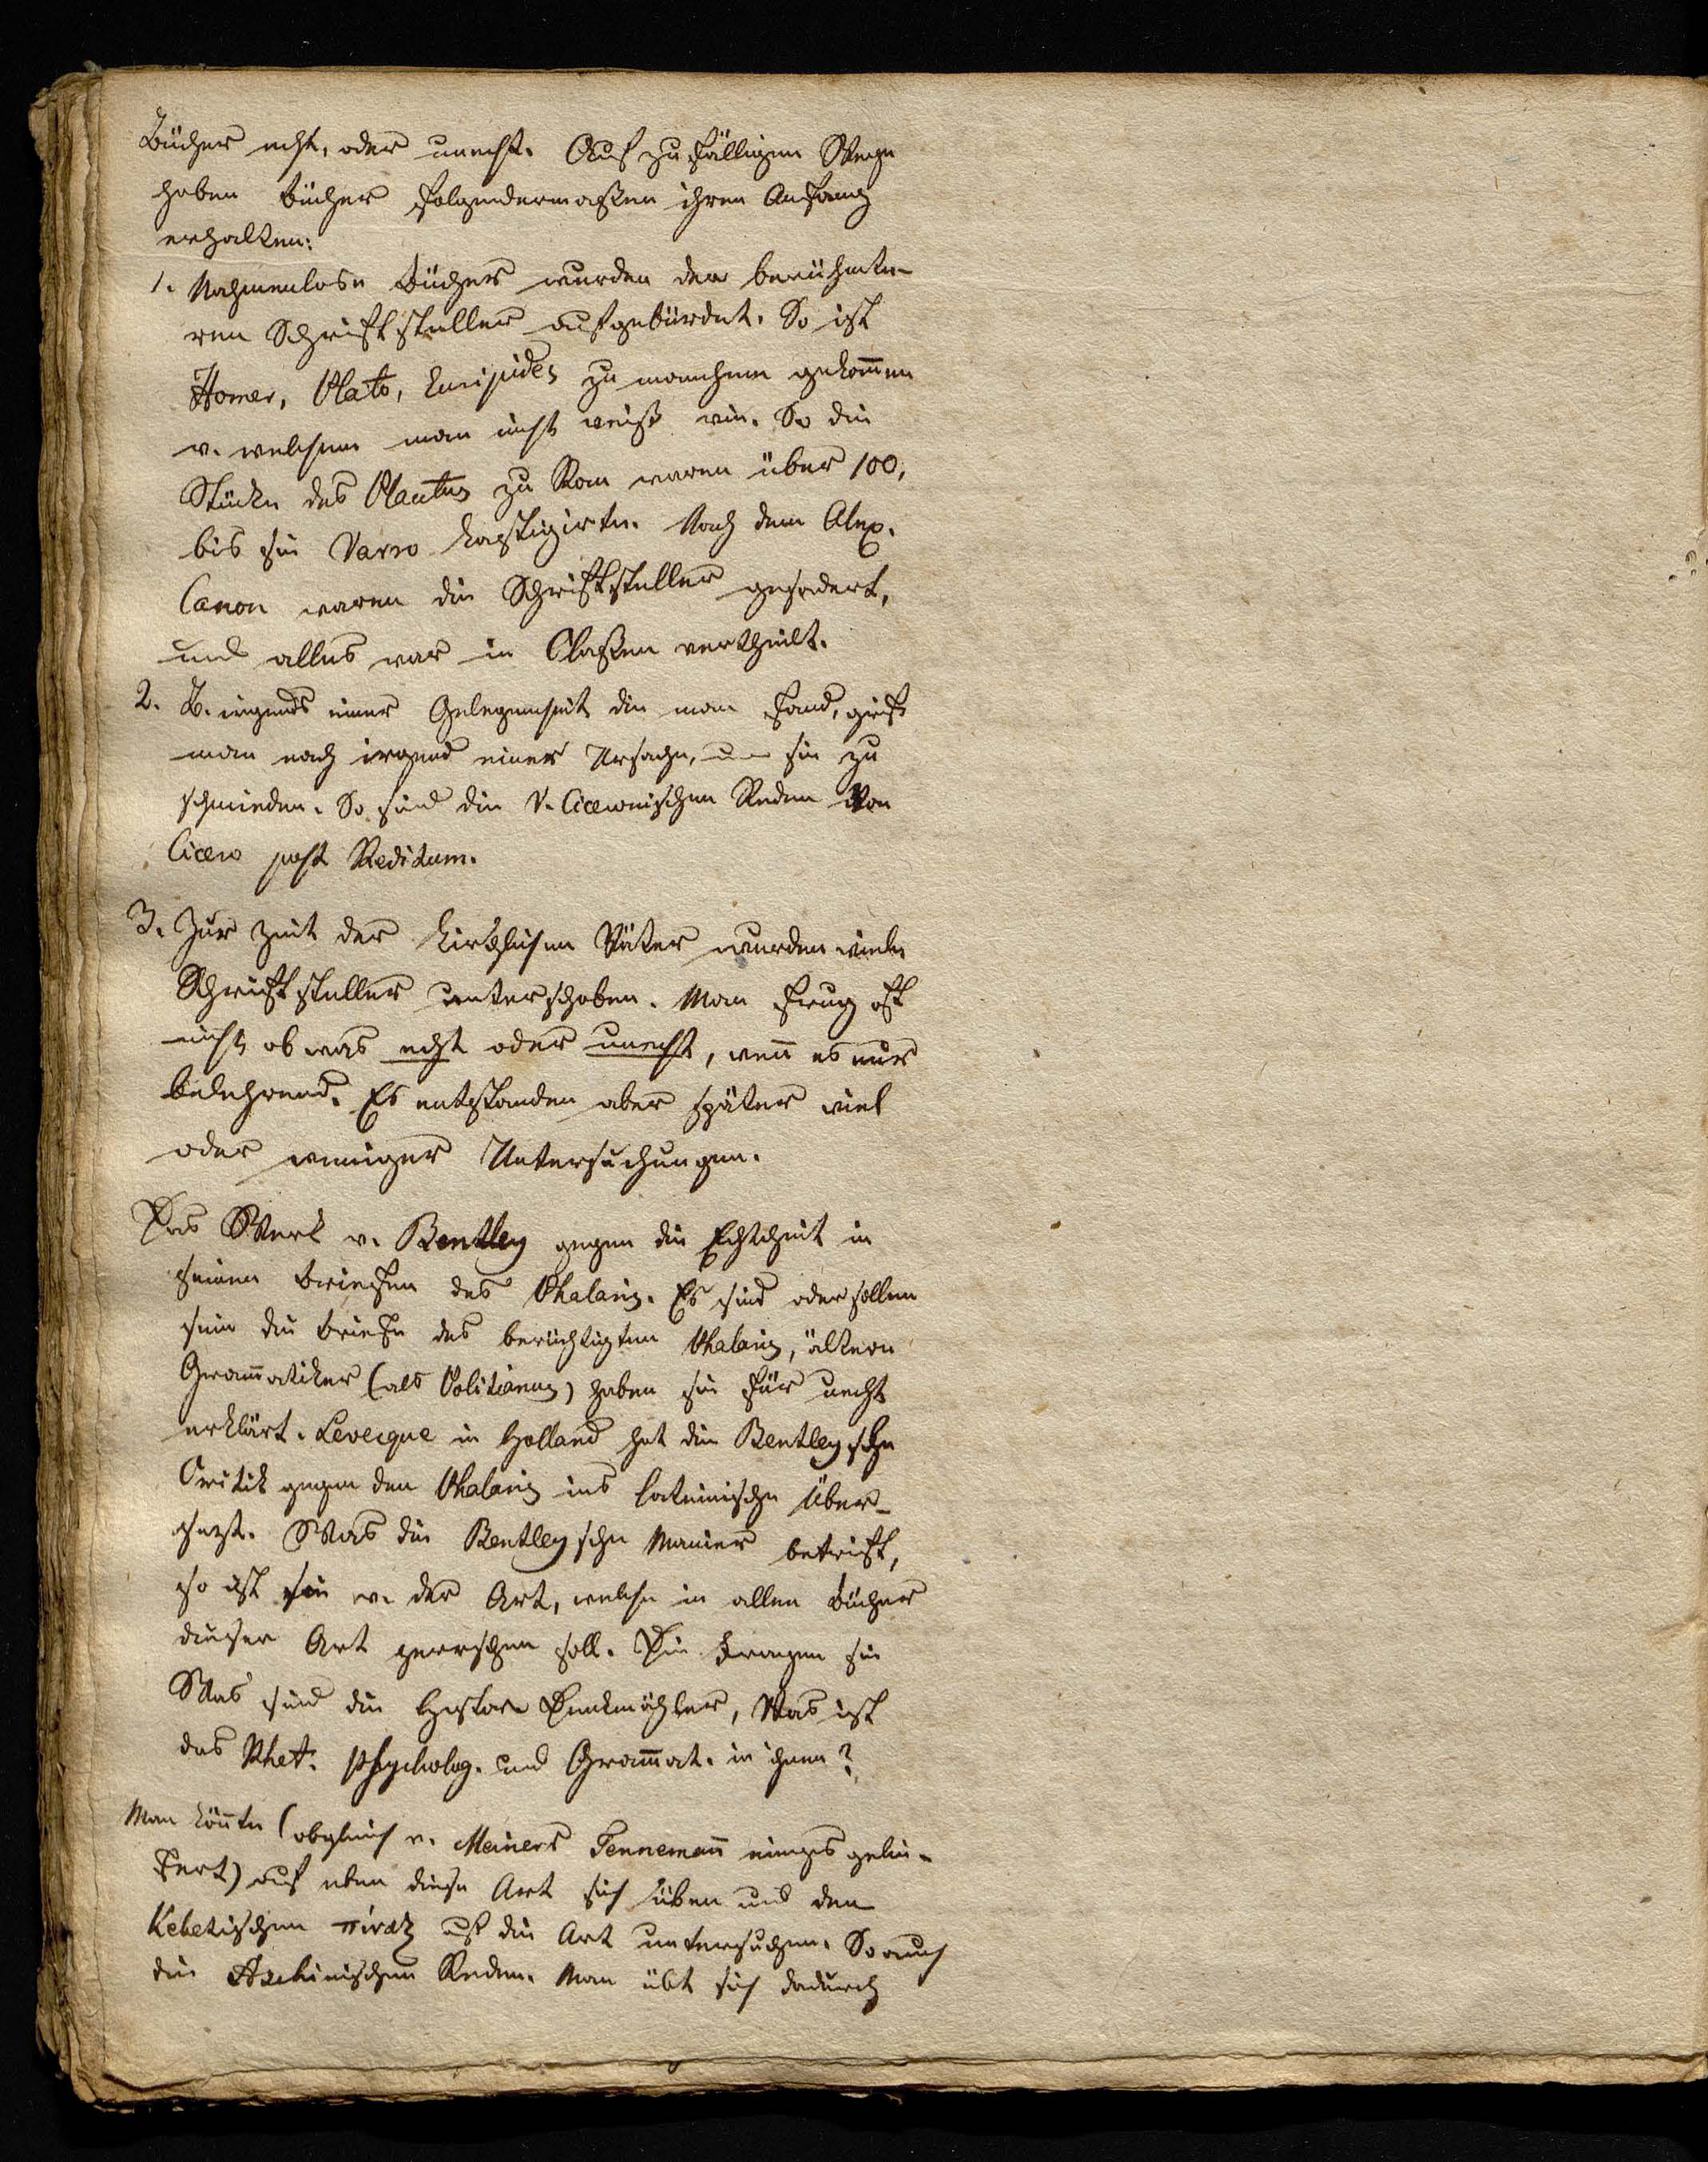 Bücher echt, oder unecht. Auf zufälligem Wege
haben Bücher folgendermaßen ihren Anfang
erhalten:
1. Nahmenlose Bücher wurden der berühmte-
ren Schriftsteller aufgebürdet. So ist
Homer, Plato, Euripides zu manchem gekom̄en
v. welchem man nicht weiß wie. So die
Stücke des Plautus zu Rom waren über 100,
bis sie Varro kastigirte. Nach dem Alex.
Canon waren die Schriftsteller gesodert,
und alles war in Claßen vertheilt.
2. B. irgends einer Gelegenheit die man fand, grif
man nach irgend einer Ursache, um sie zu
schmieden. So sind die V. Ciceronischen Reden von
Cicero post Reditum.
3. Zur Zeit der kirchlichen Väter wurden viele
Schriftsteller unterschoben. Man frug oft
nicht ob was echt oder unecht, wen̄ es nur
belehrend. Es entstanden aber später viel
oder weniger Untersuchungen.
Das Werk v. Bentley gegen die Echtheit in
seinen Briefen des Phalaris. Es sind oder sollen
sein die Briefe des berüchtigten Phalaris, ältere
Gram̄atiker (als Politianus) haben sie für unecht
erklärt. Levecque in Holland hat die Bentleysche
Critik gegen den Phalaris ins lateinische über-
setzt. Was die Bentleysche Manier betrift,
so ist sie v. der Art, welche in allen Bücher
dieser Art herrschen soll. Die Fragen sie
Was sind die Histor. Denkmähler, Was ist
das Rhet. Psycholog. und Gram̄at. in ihnen?
Man kön̄te (obgleich v. Meiners Tenneman̄ einiges gelie-
fert) auf eben diese Art sich üben und den
Kebetischen πίναξ auf die Art untersuchen. So auch
die Aschinischen Reden. Man übt sich dadurch